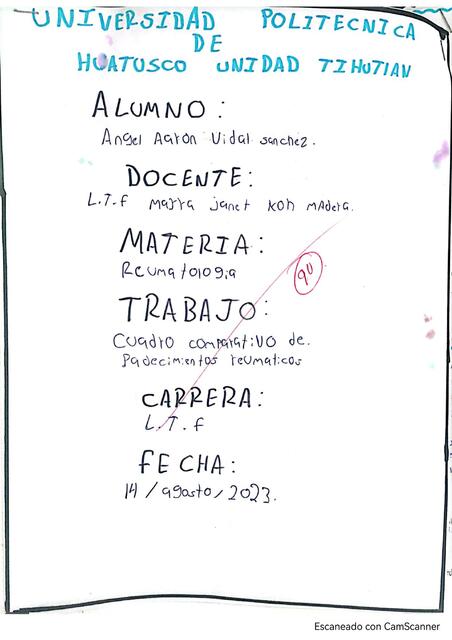 UNIVERSIDAD POLITECNICA
DE
HUATUSCO UNIDAD TIHUTIAN
ALUMNO:
Angel Aaron Vidal sanchez.
DOCENTE:
L.T.f mayra janet koh madera.
MATERIA:
Reumatologia
90
TRABAJO:
Cuadro comparativo de.
Padecimientos reumaticos
CARRERA:
L.T.f
fECHA:
14/agosto/2023.
Escaneado con CamScanner